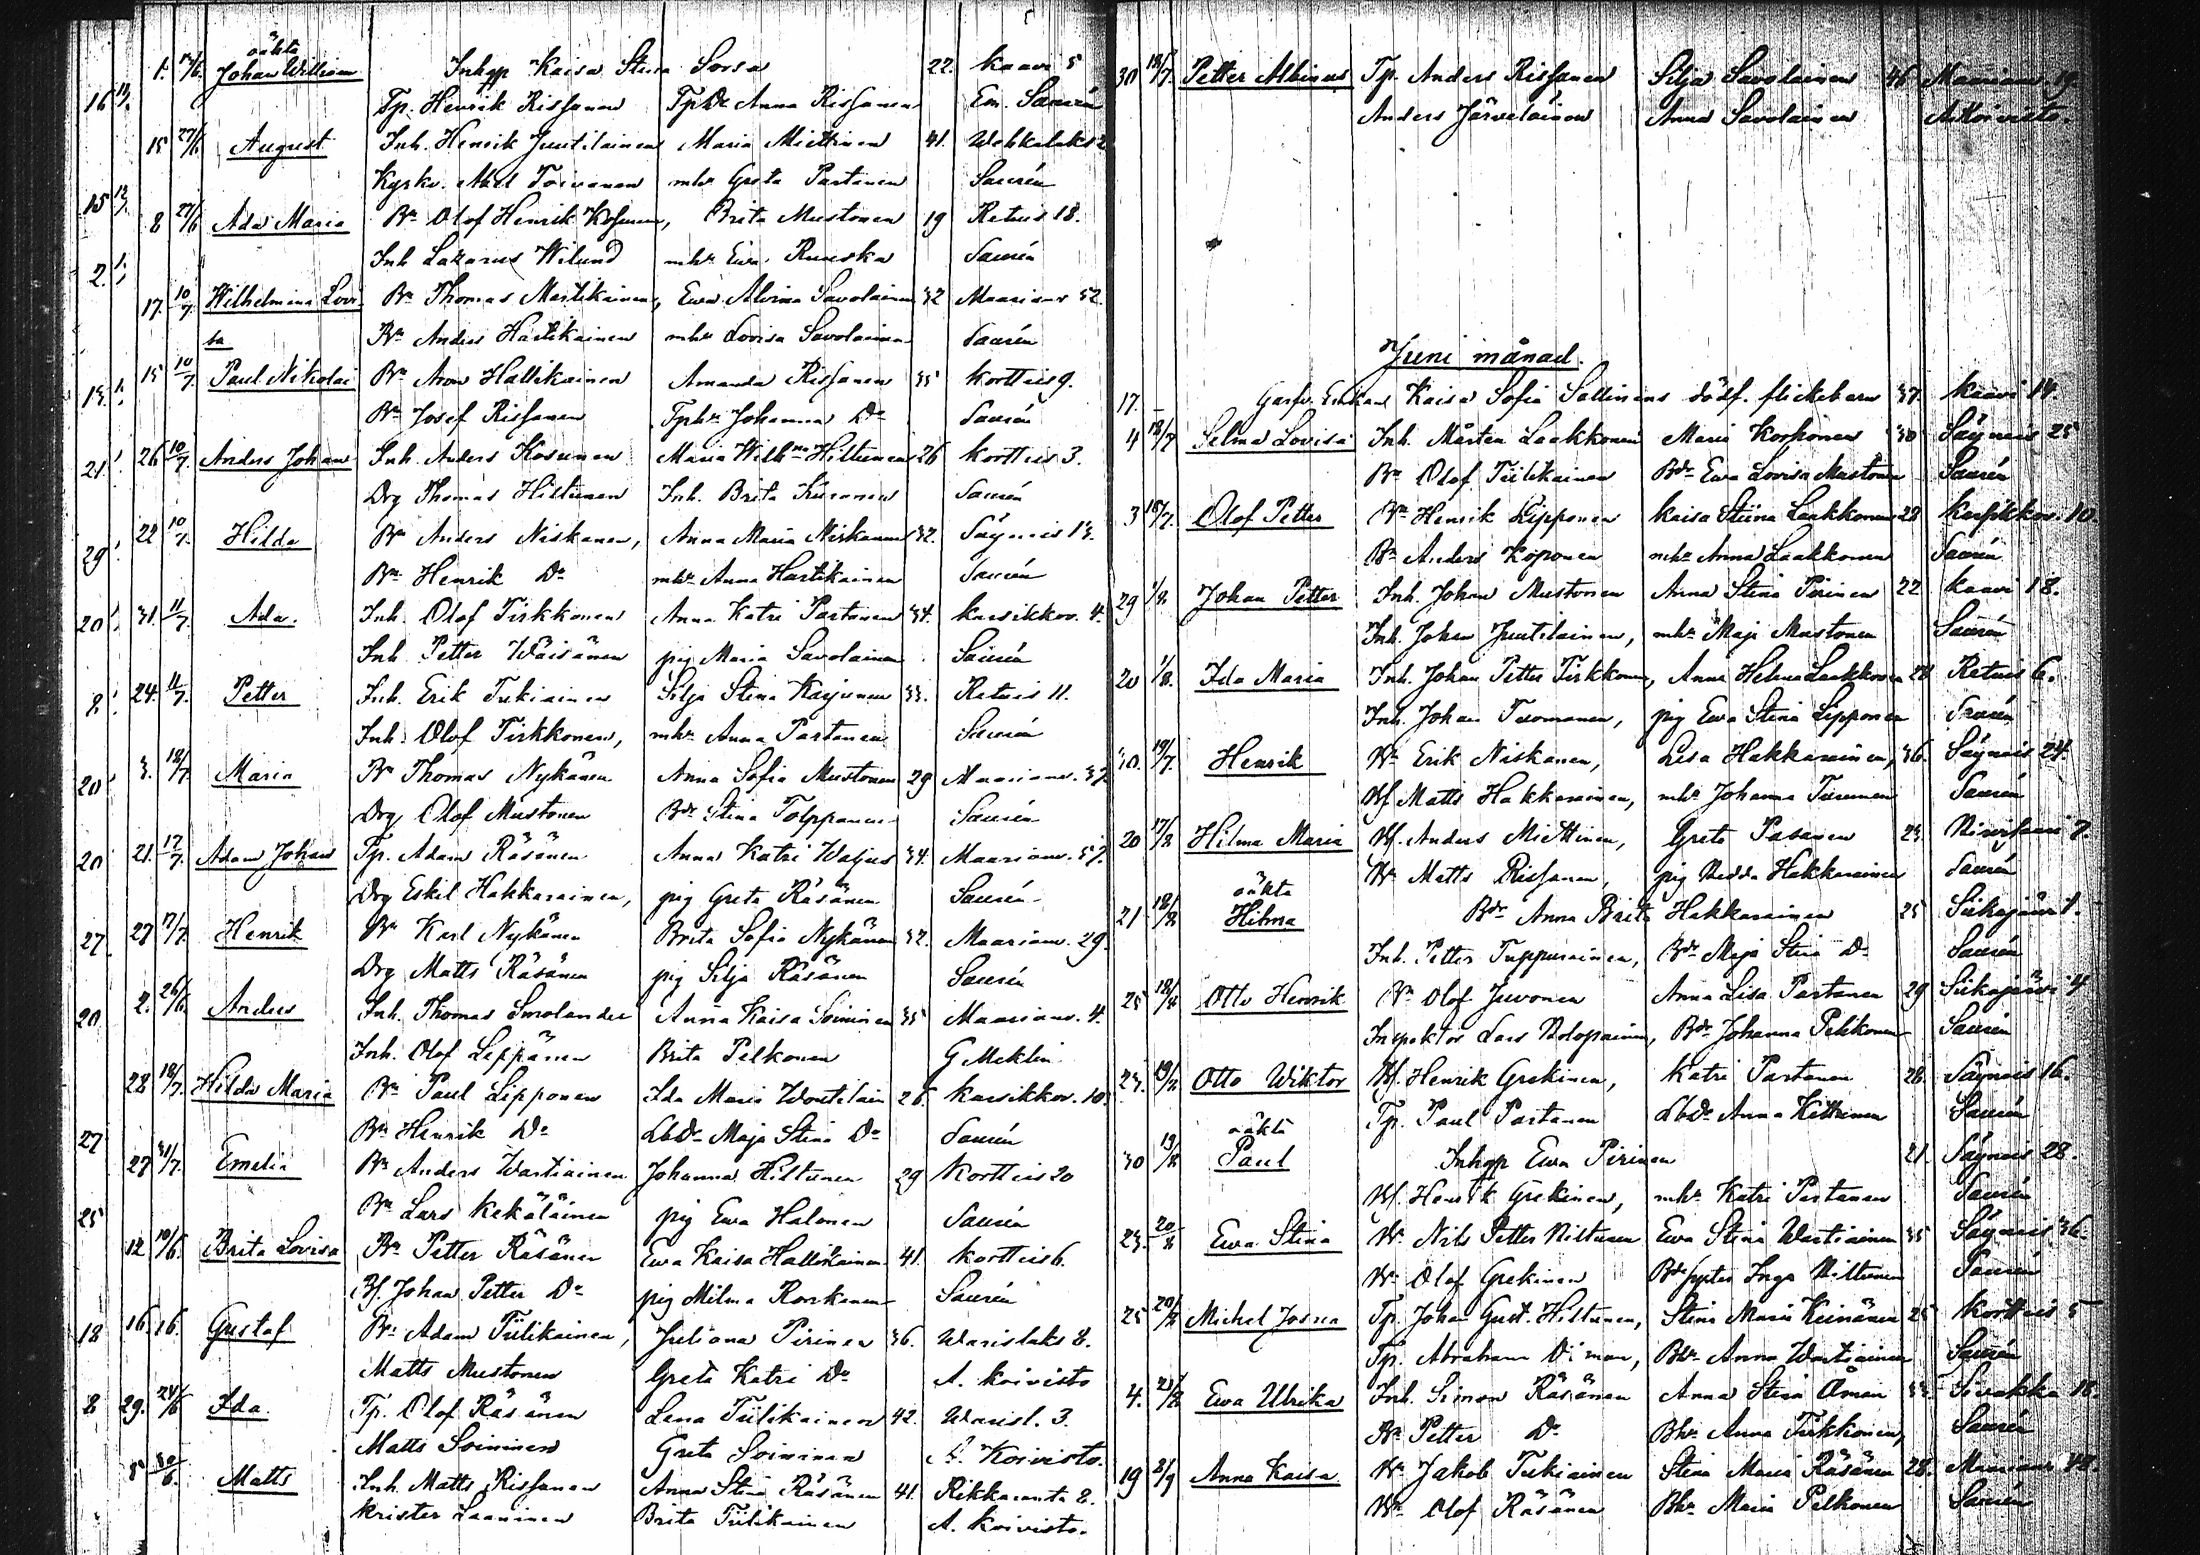 oäkta
1. Johan William Inhqp Kaisa Stina Sorsa 22. Kaavi 5
16 Tp. Henrik Rissanen Tpdr Anna Rissanen Em. Saurén
15 27/6 August Inh. Henrik Juutilainen Maria Miettinen 41. Wehkalaks 2
Kyrkv. Abel Toivanen mhr Greta Partanen Saurén
15 8 27/6 Ada Maria Bn Olof Henrik Kosunen, Brita Mustonen 19 Retuis 18.
Inh Lazarus Wilund mhr Ewa Ruuska Saurén
2. 17. 10/7 Wilhelmina Lovi Bn Thomas Martikainen, Ewa Alvina Savolainen 32 Maarianv 52.
sa Bn Anders Hartikainen mhr Lovisa Savolainen Saurén
15 10/7 Paul Nikolai Bn Aron Hallikainen Amanda Rissanen 35 Kortteis 9.
Bn Josef Rissanen Tphr Johanna Do Saurén
21 26 10/7 Anders Johan Inh. Anders Kosunen Maria Wilhna Hiltunen 26 Kortteis 3.
Drg Thomas Hiltunen Inh. Brita Saurén
29 22 10/7 Hilda Bn Anders Niskanen, Anna Maria Niskanen 32. Säyneis 13.
Bn Henrik Do mhr Anna Hartikainen Saurén
20 31. 11/7 Ada. Inh. Olof Tirkkonen Anna Katri Partanen 34. Karsikkov. 4.
Inh. Petter Wäisänen pig Maria Savolainen Saurén
8 24. 11/7 Petter Inh. Erik Tukiainen Silja Stina Karjunen 33. Retuis 11.
Inh. Olof Tirkkonen, mhr Anna Partanen Saurén
20 3. 18/7 Maria Bn Thomas Nykänen Anna Sofia Mustonen 29 Maarianv. 37
Drg Olof Mustonen Bdr Stina Tolppanen Saurén
20 21. 17/7 Adam Johan Tp. Adam Räsänen Anna Katri Watjus 34. Maarianv. 57.
Drg Eskil Hakkarainen, pig Greta Räsänen Saurén
27 27 17/7 Henrik Bn Karl Nykänen Brita Sofia Nykänen 32. Maarianv. 29.
Drg Matts Räsänen pig Silja Räsänen Saurén
20 2. 26/6 Anders Inh. Thomas Smolander Anna Kaisa Soininen 35 Maarianv. 4.
Inh. Olof Leppänen Brita Pelkonen G Meklin
28 18/7 Hilda Maria Bn Paul Lipponen Ida Maria Woutilain 26. Karsikkov. 10.
27 Bn Henrik Do Lbdr Maja Stina Do Saurén
27 31/7. Emelia Bn Anders Wartiainen Johanna Hiltunen 29 Kortteis 20
25 Bn Lars Kekäläinen pig Ewa Halonen Saurén
12 10/6. Brita Lovisa Bn Petter Räsänen Ewa Kaisa Hallikainen 41. Kortteis 6.
Bf. Johan Petter Do pig Milma Korkonen Saurén
18 16. 16. Gustaf Bn Adam Tiilikainen, Juliana Pirinen 36. Warislaks 8.
Matts Mustonen Greta Katri Do A. Koivisto
8 29. 24/6 Ida. Tp. Olof Räsänen Lena Tiilikainen 42. Warisl. 3.
Matts Soininen Greta Soininen A. Koivisto.
5 30/6. Matts Inh. Matts Rissanen Anna Stina Räsänen 41. Rikkaranta 2.
Krister Laaninen Brita Tiilikainen A. Koivisto.
30 18/7. Petter Albinus Tp. Anders Rissanen Silja Savolainen 46 Maarianv 19.
Anders Järveläinen Anna Savolainen A. Koivisto.
Juni månad.
17. – Garfv. Enkan Kaisa Sofia Sallinens dödf. flickebarn 37. Kaavi 14.
4 18/7 Selma Lovisa Inh. Mårten Laakkonen Maria Korhonen 30 Säyneis 25
Bn Olof Tiilikainen Bdr Ewa Lovisa Mustonen Saurén
3 18/7. Olof Petter Bn Henrik Lipponen Kaisa Stiina Laakkonen 28 Karsikkov. 10.
Bn Anders Koponen mhr Anna Laakkonen Saurén
29 1/8 Johan Petter Inh. Johan Mustonen Anna Stina Pirinen 22 Kaavi 18.
Inh. Johan Juutilainen, mhr Maja Mustonen Saurén
20 1/8. Ida Maria Inh. Johan Petter Tirkkonen, Anna Helena Laakkonen 28 Retuis 6.
Inh. Johan Tuomanen, pig Ewa Stina Lipponen Saurén
30. 19/7. Henrik Bn Erik Niskanen, Lisa Hakkarainen, 36. Säyneis 24.
Bf Matts Hakkarainen, mhr Johanna Turunen Saurén
20 17/8 Hilma Maria Bf. Anders Miettinen, Greta Pasanen 23. Niinivaari 7.
Bn Matts Rissanen, pig Hedda Hakkarainen Saurén
oäkta
21 18/8 Hilma Bdr Anna Brita Hakkarainen 25 Siikajärvi 1.
Inh. Petter Tuppurainen, Bdr Maja Stina Do Saurén
25 18/8 Otto Henrik Bn Olof Juvonen Anna Lisa Partanen 29 Siikajärvi 4
Inspektor Lars Bolopainen, Bdr Johanna Pehkonen Saurén
23. 19/8 Otto Wiktor Bf. Henrik Grekinen, Katri Partanen 26. Säyneis 16.
Tp. Paul Partanen Lbdr Anna Kettunen Saurén
oäkta
30 19/8 Paul Inhqp Ewa Pirinen 21. Säyneis 28.
Bf. Henrik Grekinen, mhr Katri Partanen Saurén
23. 20/8 Ewa Stina Bn Nils Petter Niltunen Ewa Stina Wartiainen 35 Säyneis 36.
Bn Olof Grekinen Saurén
25 20/8 Michel Josua Tp. Johan Gust. Hiltunen, Stina Maria Keinänen 25 Kortteis 5
Tp. Abraham Diman, Bhr Anna Wartiainen Saurén
4. 21/8 Ewa Ulrika Inh. Simon Räsänen Anna Stina Öman 33. Sivakka 18.
Bn Petter Do Bhr Anna Tirkkonen, Saurén
19 2/9 Anna Kaisa Bn Jakob Tukiainen Stina Maria Räsänen 28. Maarianv 42.
Bn Olof Räsänen Bhr Maria Pelkonen Saurén